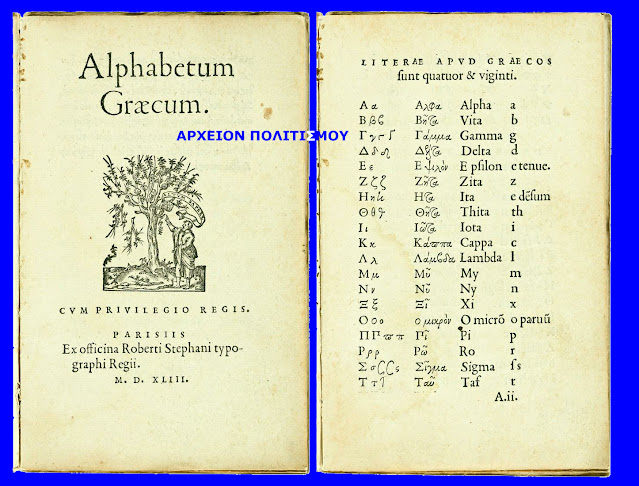 Alphabetum
Græcum.
ΑΡΧΕΙΟΝ ΠΟΛΙΤΙΣΜΟΥ
CVM PRIVILEGIO REGIS.
PARISIIS
Ex officina Roberti Stephani typo-
graphi Regii.
M. D. XLIII.
LITERAE APVD GRAECOS
sunt quatuor & viginti.
Α α Αλφα Alpha a
Β β ϐ Βῆτα Vita b
Γ γ Γάμμα Gamma g
Δ δ Δέλτα Delta d
Ε ε Ε ψιλὸν E psilon e tenue.
Ζ ζ ζ Ζῆτα Zita z
Η η Ητα Ita e dẽsum
Θ θ ϑ Θῆτα Thita th
Ι ι Ιῶτα Iota i
Κ κ Κάππα Cappa c
Λ λ Λάμβδα Lambda l
Μ μ Μῦ My m
Ν ν Νῦ Ny n
Ξ ξ Ξῖ Xi x
Ο ο ο ο μικρὸν O micrõ o paruũ
Π Π ϖ π Πῖ Pi p
Ρ ρ ρ Ρῶ Ro r
Σ σ ς Σῖγμα Sigma ſ s
Τ τ Ταῦ Taf t
A.ii.